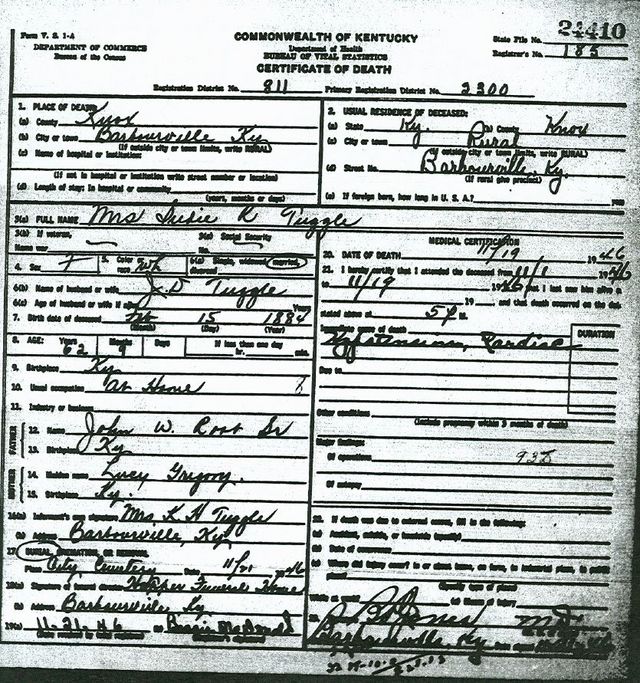 Form V. S. 1-A
DEPARTMENT OF COMMERCE
Bureau of the Census
COMMONWEALTH OF KENTUCKY
Department of Health
BUREAU OF VITAL STATISTICS
CERTIFICATE OF DEATH
State File No. 24410
Registrar's No. 185
Registration District No. 811 Primary Registration District No. 2300
1. PLACE OF DEATH:
(a) County Knox
(b) City or town Barbourville Ky
(If outside city or town limits, write RURAL)
(c) Name of hospital or institution:
(If not in hospital or institution write street number or location)
(d) Length of stay: In hospital or community
(years, months or days)
2. USUAL RESIDENCE OF DECEASED:
(a) State Ky. (b) County Knox
(c) City or town Rural
(If outside city or town limits, write RURAL)
(d) Street No. Barbourville, Ky.
(If rural give precinct)
(e) If foreign born, how long in U. S. A.?
3(a) FULL NAME Mrs Susie R Tuggle
3(b) If veteran,
Name war
3(c) Social Security
No.
4. Sex F 5. Color or race Wh 6(a) Single, widowed, married, divorced
6(b) Name of husband or wife J. D. Tuggle
6(c) Age of husband or wife if alive
7. Birth date of deceased Feb 15 1884
(Month) (Day) (Year)
8. AGE: Years 62 Months 9 Days If less than one day
hr. min.
9. Birthplace Ky
10. Usual occupation At Home
11. Industry or business
FATHER
12. Name John W. Root Sr
13. Birthplace Ky
MOTHER
14. Maiden name Lucy Gregory.
15. Birthplace Ky.
16(a) Informant's own signature Mrs K. H Tuggle
(b) Address Barbourville, Ky
17. BURIAL, CREMATION, OR REMOVAL
Place City Cemetery Date 11/21 1946
18(a) Signature of funeral director Hopper Funeral Home
(b) Address Barbourville, Ky
19(a) 11-21-46
(Date received by local registrar)
MEDICAL CERTIFICATION
20. DATE OF DEATH 11/19 1946
21. I hereby certify that I attended the deceased from 11/1 1946
to 11/19 1946 that I last saw him alive on
19 and the death occurred on the date
stated above at 5 P m.
Immediate cause of death DURATION
Hypertension, Cardiac
Due to
Other conditions
(Include pregnancy within 3 months of death)
Major findings:
Of operations
Of autopsy
22. If death was due to external causes, fill in the following:
(a) Accident, suicide, or homicide (specify)
(b) Date of occurrence
(c) Where did injury occur? in or about home, on farm, in industrial place, in public
place?
(Specify type of place)
While at work? (e) Means of injury
Jones MD
Barbourville, Ky